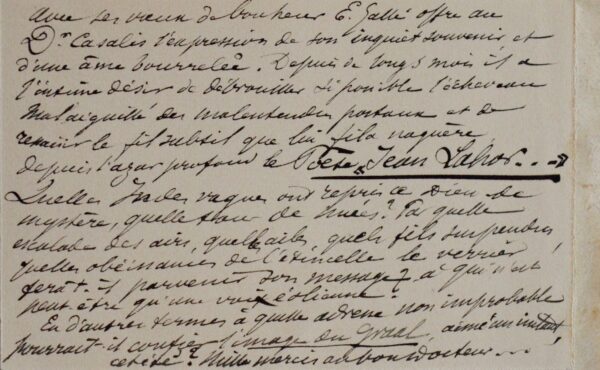 avec ses vœux de bonheur E. Gallé offre au
Dr. Casalis l'expression de son inquiet souvenir et
d'une âme bourrelée. Depuis de longs mois il a
l'intime désir de débrouiller si possible l'écheveau
mal aiguillé des malentendus postaux et de
ressaisir le fil subtil que lui fila naguère
depuis l'azur profond le Poète, Jean Lahor...
Quelles Indes vagues ont repris ce Dieu de
mystère, quelle tour de nuées? Par quelle
escalade des airs, quelles ailes, quels fils suspendus,
quelles obéissances de l'étincelle le verrier
ferat-il parvenir son message, à qui n'est
peut être qu'une voix éolienne?
En d'autres termes à quelle adresse non improbable
pourrait-il confier l'image du Graal, aimé un instant,
cet été? Mille mercis au bon docteur...